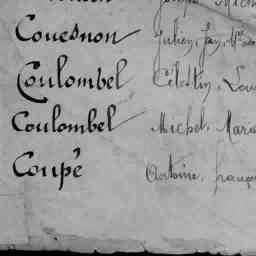 Couesnon Julien, Jay,
Coulombel Célestin, Lou
Coulombel Michel, Maria
Coupé Antoine, françoi